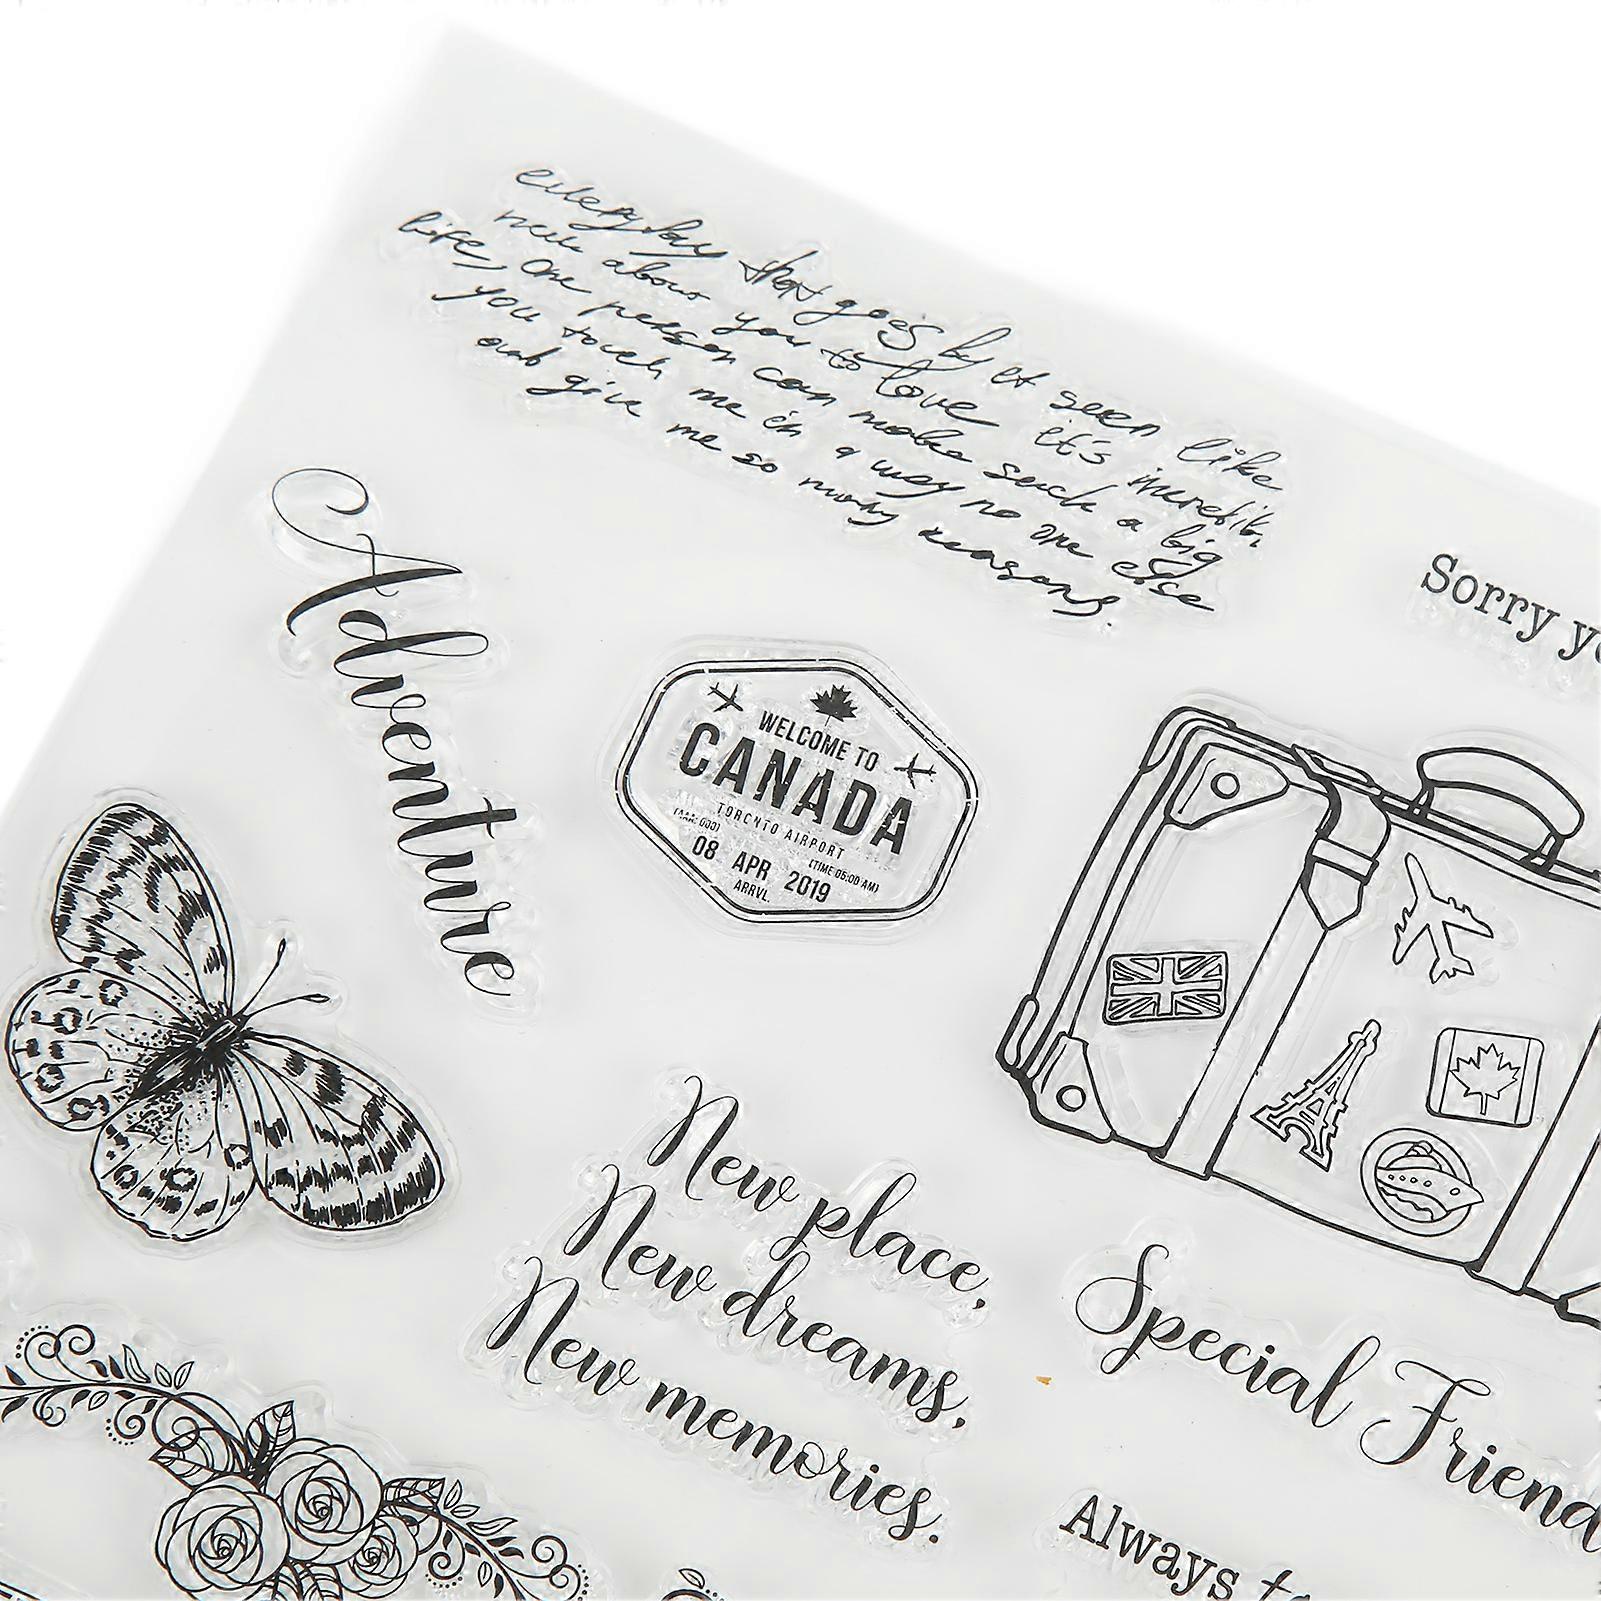 everyday that goes by it seem like
love it's
life, one person can make such a big
you touch me in a way no one else
and give me so many reasons.
Adventure
WELCOME TO
CANADA
TORONTO AIRPORT
(TIME 05:00 AM)
08 APR 2019
ARRVL.
Sorry yo
New place,
New dreams,
New memories.
Special Friend
Always to